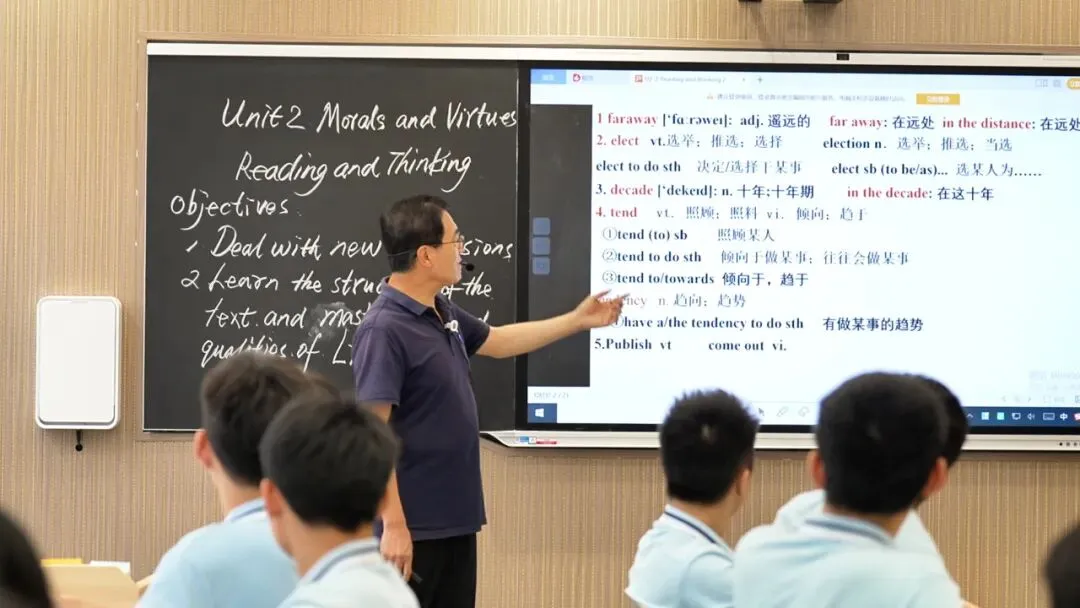 Unit 2 Morals and Virtues
Reading and Thinking
Objectives
1 Deal with new
2 Learn the the
text. and
qualities of
1 faraway ['fɑːrəweɪ]: adj. 遥远的 far away: 在远处 in the distance: 在远处
2. elect vt.选举；推选；选择 election n. 选举；推选；当选
elect to do sth 决定/选择干某事 elect sb (to be/as)... 选某人为……
3. decade ['dekeɪd]: n. 十年;十年期 in the decade: 在这十年
4. tend vt. 照顾；照料 vi. 倾向；趋于
①tend (to) sb 照顾某人
②tend to do sth 倾向于做某事；往往会做某事
③tend to/towards 倾向于，趋于
n. 趋向；趋势
have a/the tendency to do sth 有做某事的趋势
5.Publish vt come out vi.